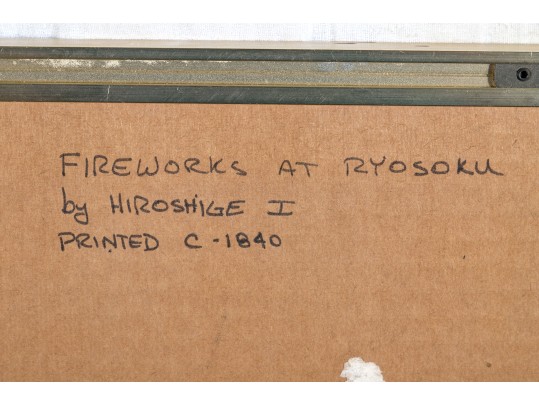 FIREWORKS AT RYOSOKU
by HIROSHIGE I
PRINTED C-1840